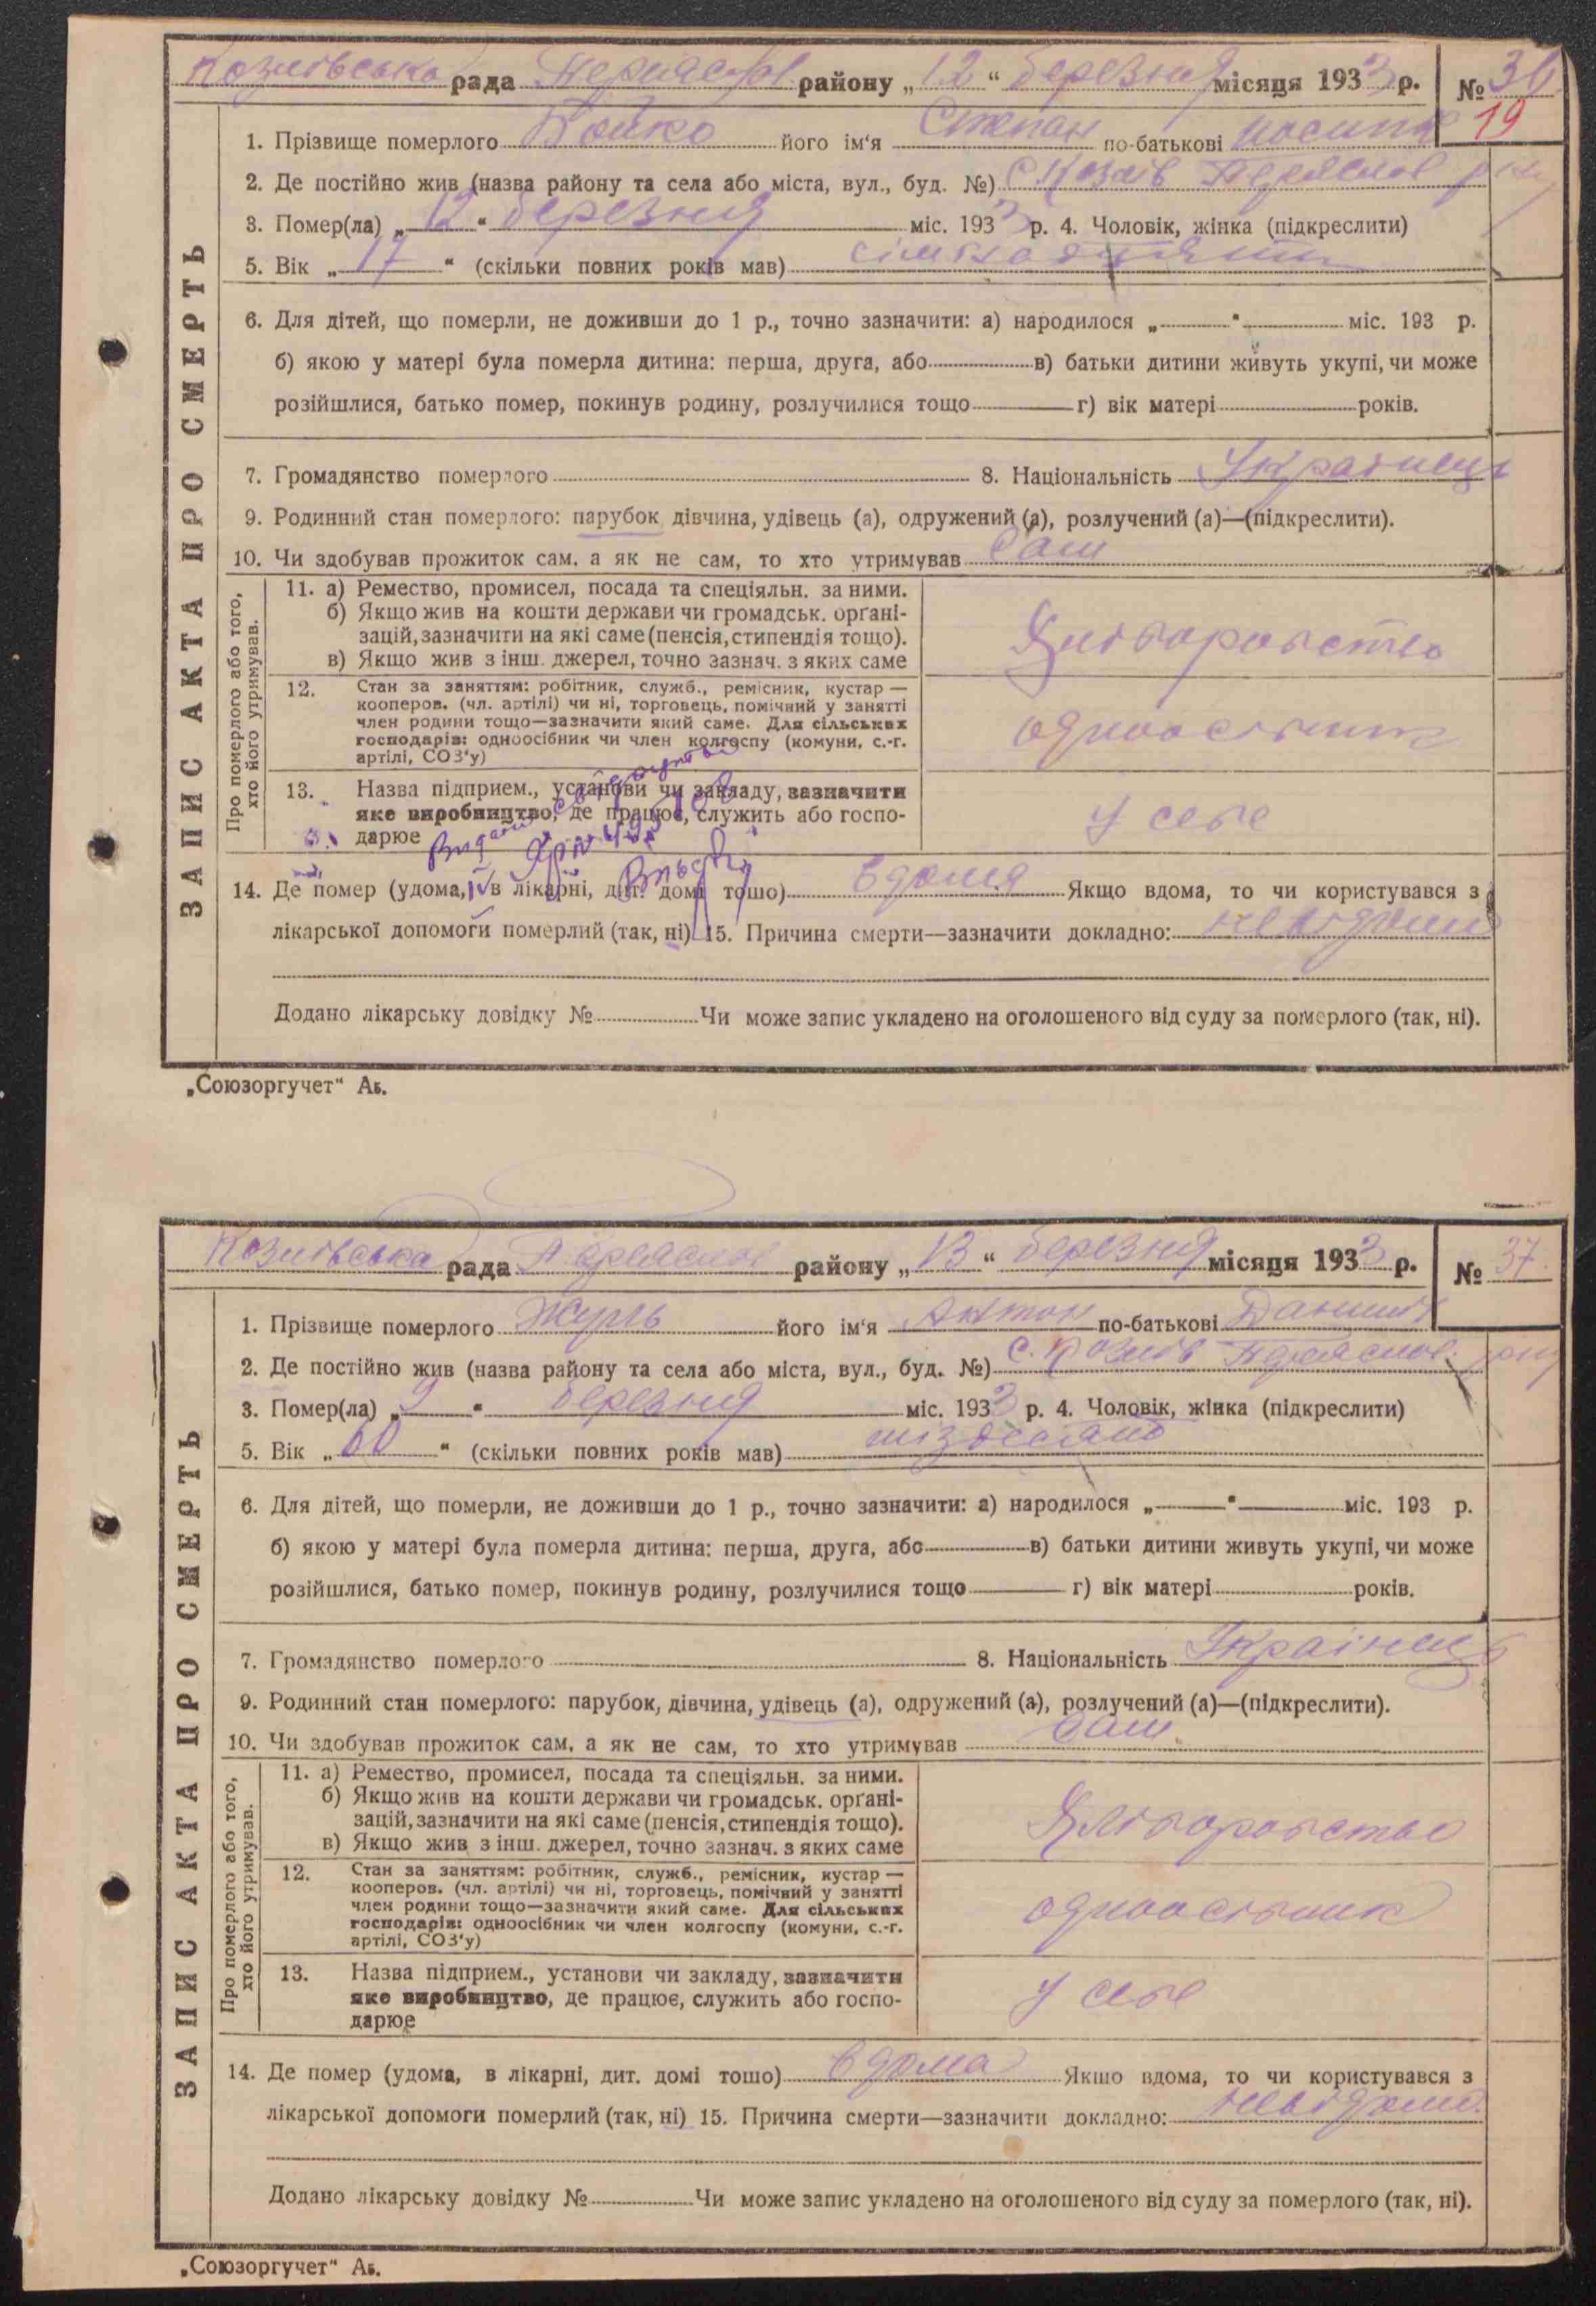 Козлівська рада Переяслов району „12“ березня місяця 1933 р. № 36
19
1. Прізвище померлого Бойко його ім'я Степан по-батькові Йосипов
2. Де постійно жив (назва району та села або міста, вул., буд. №) с. Козлів Переяслов району
3. Помер(ла) „12“ березня міс. 1933 р. 4. Чоловік, жінка (підкреслити)
5. Вік „17“ (скільки повних років мав) сімнадцять
6. Для дітей, що померли, не доживши до 1 р., точно зазначити: а) народилося „ “ міс. 193 р.
б) якою у матері була померла дитина: перша, друга, або в) батьки дитини живуть укупі, чи може
розійшлися, батько помер, покинув родину, розлучилися тощо г) вік матері років.
7. Громадянство померлого 8. Національність Українець
9. Родинний стан померлого: парубок, дівчина, удівець (а), одружений (а), розлучений (а)—(підкреслити).
10. Чи здобував прожиток сам, а як не сам, то хто утримував сам
Про померлого або того,
хто його утримував.
11. а) Ремество, промисел, посада та спеціяльн. за ними.
б) Якщо жив на кошти держави чи громадськ. орґані-
зацій, зазначити на які саме (пенсія, стипендія тощо).
в) Якщо жив з інш. джерел, точно зазнач. з яких саме
Хліборобство
12. Стан за заняттям: робітник, служб., ремісник, кустар —
кооперов. (чл. артілі) чи ні, торговець, помічний у занятті
член родини тощо—зазначити який саме. Для сільських
господарів: одноосібник чи член колгоспу (комуни, с.-г.
артілі, СОЗ'у)
одноосібник
13. Назва підприєм., установи чи закладу, зазначити
яке виробництво, де працює, служить або госпо-
дарює
у селі
14. Де помер (удома, в лікарні, дит. домі тощо) вдома Якщо вдома, то чи користувався з
лікарської допомоги померлий (так, ні) 15. Причина смерти—зазначити докладно: невідомо
Додано лікарську довідку № Чи може запис укладено на оголошеного від суду за померлого (так, ні).
ЗАПИС АКТА ПРО СМЕРТЬ
„Союзоргучет“ Аб.
Козлівська рада Переяслов району „13“ березня місяця 1933 р. № 37.
1. Прізвище померлого Журль його ім'я Антон по-батькові Данилів
2. Де постійно жив (назва району та села або міста, вул., буд. №) с. Козлів Переяслов. району
3. Помер(ла) „9“ березня міс. 1933 р. 4. Чоловік, жінка (підкреслити)
5. Вік „60“ (скільки повних років мав) шіздесять
6. Для дітей, що померли, не доживши до 1 р., точно зазначити: а) народилося „ “ міс. 193 р.
б) якою у матері була померла дитина: перша, друга, або в) батьки дитини живуть укупі, чи може
розійшлися, батько помер, покинув родину, розлучилися тощо г) вік матері років.
7. Громадянство померлого 8. Національність Українець
9. Родинний стан померлого: парубок, дівчина, удівець (а), одружений (а), розлучений (а)—(підкреслити).
10. Чи здобував прожиток сам, а як не сам, то хто утримував сам
Про померлого або того,
хто його утримував.
11. а) Ремество, промисел, посада та спеціяльн. за ними.
б) Якщо жив на кошти держави чи громадськ. орґані-
зацій, зазначити на які саме (пенсія, стипендія тощо).
в) Якщо жив з інш. джерел, точно зазнач. з яких саме
Хліборобство
12. Стан за заняттям: робітник, служб., ремісник, кустар —
кооперов. (чл. артілі) чи ні, торговець, помічний у занятті
член родини тощо—зазначити який саме. Для сільських
господарів: одноосібник чи член колгоспу (комуни, с.-г.
артілі, СОЗ'у)
одноосібник
13. Назва підприєм., установи чи закладу, зазначити
яке виробництво, де працює, служить або госпо-
дарює
у селі
14. Де помер (удома, в лікарні, дит. домі тощо) вдома Якщо вдома, то чи користувався з
лікарської допомоги померлий (так, ні) 15. Причина смерти—зазначити докладно: невідомо.
Додано лікарську довідку № Чи може запис укладено на оголошеного від суду за померлого (так, ні).
ЗАПИС АКТА ПРО СМЕРТЬ
„Союзоргучет“ Аб.